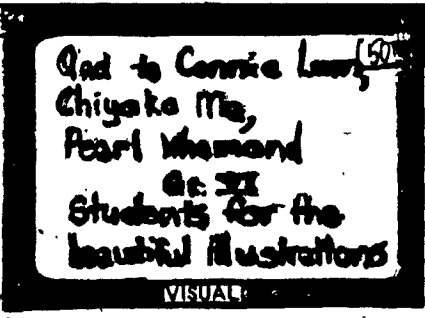 And to Connie
Chiyoko Ma,
Pearl
Gr. VI
Students for the
beautiful illustrations
VISUAL